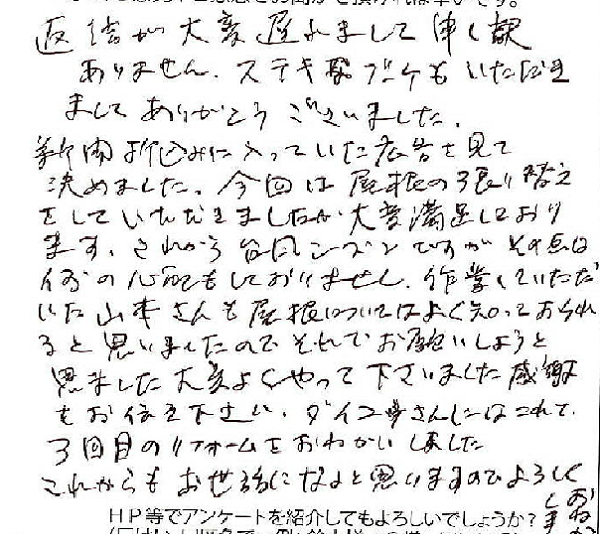 返信が大変遅れまして申し訳
ありません。ステキなブーケもいただき
ましてありがとうございました。
新聞折込みに入っていた広告を見て
決めました。今回は屋根の張り替え
をしていただきましたが大変満足しており
ます。これから台風シーズンですがその点は
何の心配もしておりません。作業していただ
いた山本さんも屋根についてはよく知っておられ
ると思いましたのでそれでお願いしようと
思ました大変よくやって下さいました感謝
をお伝え下さい。ダイコーさんにはこれで
3回目のリフォームをおねがいしました
これからもお世話になると思いますのでよろしく
おねが
しま
HP等でアンケートを紹介してもよろしいでしょうか?